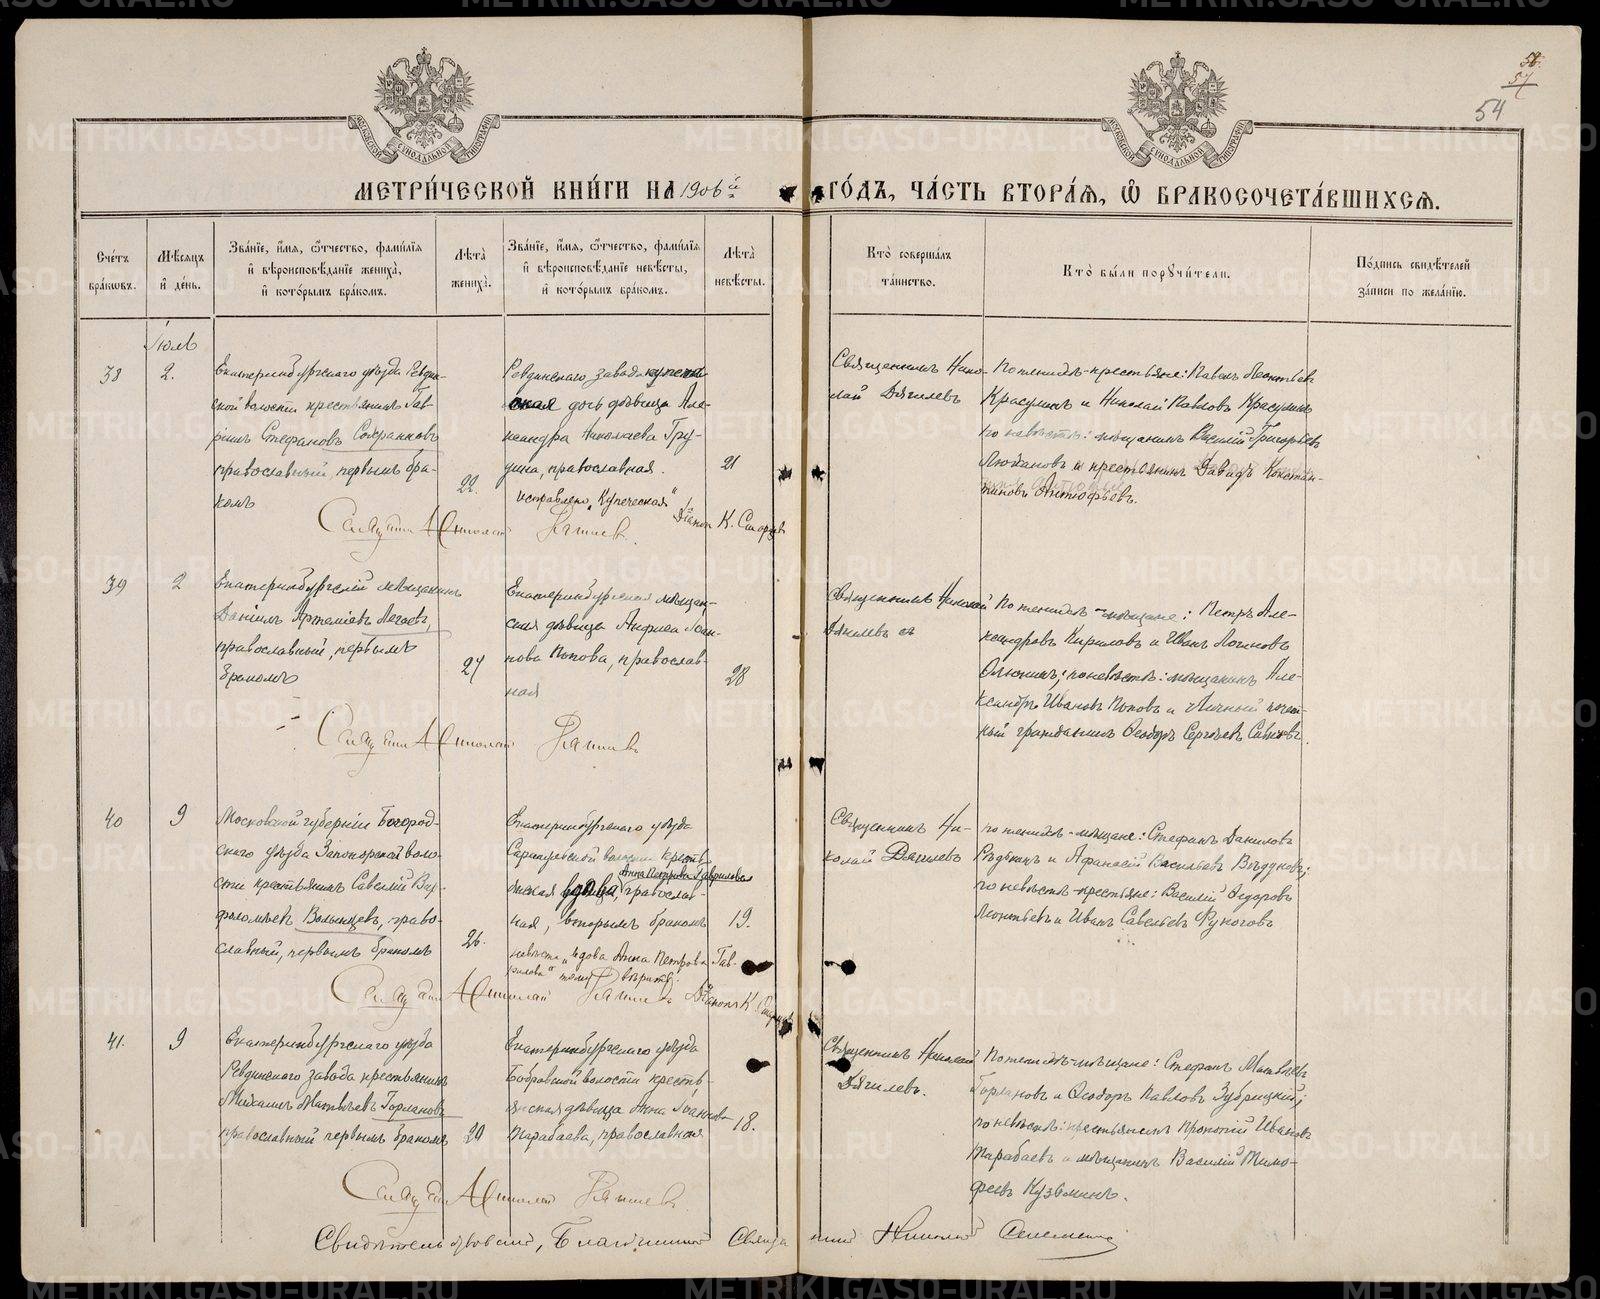 54
МЕТРИ́ЧЕСКОЙ КНИ́ГИ НА 1906й ГО́ДЪ, ЧА́СТЬ ВТОРА́Я, Ѿ БРАКОСОЧЕТА́ВШИХСѦ.
Сче́тъ бра́ковъ.
Мѣ́сяцъ и́ де́нь.
Зва́нїе, и́мя, ѻ́тчество, фами́лїя
и́ вѣроисповѣ́данїе жениха̀,
и́ кото́рымъ бра́комъ.
Лѣта̀ жениха̀.
Зва́нїе, и́мя, ѻ́тчество, фами́лїя
и́ вѣроисповѣ́данїе невѣ́сты,
и́ кото́рымъ бра́комъ.
Лѣта̀ невѣ́сты.
Кто̀ соверша́лъ та́инство.
Кто̀ бы́ли порꙋчи́тели.
По́дпись свидѣ́телей
за́писи по жела́нїю.
Іюль
38
2.
Екатеринбургскаго уѣзда Ревдин-
ской волости крестьянинъ Гав-
рiилъ Стефановъ
православный, первымъ бра-
комъ
22.
Ревдинскаго завода купече-
ская дочь дѣвица Але-
ксандра Николаева Гру-
православная.
исправлено „Купеческая"
21
Священникъ Нико-
лай Дягилевъ
По женихѣ-крестьяне: Павелъ Леонтьевъ
Красулинъ и Николай Павловъ Красулинъ
по невѣстѣ: мѣщанинъ Василій Григорьевъ
и крестьянинъ Давидъ Констан-
тиновъ
Священникъ Николай Дягилевъ
39
2
Екатеринбургскій мѣщанинъ
Даніилъ Артеміевъ
православный, первымъ
бракомъ
27
Екатеринбургская мѣщан-
ская дѣвица Іоан-
нова Попова, православ-
ная
28
Священникъ Николай
Дягилевъ
По женихѣ-мѣщане: Петръ Але-
ксандровъ Кириловъ и Иванъ Логиновъ
по невѣстѣ: мѣщанинъ Але-
ксандръ Ивановъ Поповъ и Личный почет-
ный гражданинъ Ѳеодоръ Сергѣевъ
Священникъ Николай Дягилевъ
40
9
Московской губерніи Богород-
скаго уѣзда Запонорской воло-
сти крестьянинъ Савелій Вар-
фоломѣевъ Волынцевъ, право-
славный, первымъ бракомъ
26.
Екатеринбургскаго уѣзда
волости кресть-
Анна Петрова Гаврилова
янская вдова, православ-
ная, вторымъ бракомъ
невѣста „вдова Анна Петрова Гав-
рилова" вѣрить.
19.
Священникъ Ни-
колай Дягилевъ
по женихѣ-мѣщане: Стефанъ Даниловъ
и Афанасій Васильевъ
по невѣстѣ-крестьяне: Василій Ѳедоровъ
Леонтьевъ и Иванъ Савельевъ
Священникъ Николай Дягилевъ
41.
9
Екатеринбургскаго уѣзда
Ревдинскаго завода крестьянинъ
Михаилъ Матвѣевъ Горлановъ
православный первымъ бракомъ
Екатеринбургскаго уѣзда
Бобровской волости кресть-
янская дѣвица Анна Іоаннова
Тарабаева, православная
18.
Священникъ Николай
Дягилевъ.
По женихѣ-мѣщане: Стефанъ Матвѣевъ
Горлановъ и Ѳеодоръ Павловъ Зубрицкій;
по невѣстѣ: крестьянинъ Прокопій Ивановъ
Тарабаевъ и мѣщанинъ Василій Тимо-
феевъ Кузьминъ.
Священникъ Николай Дягилевъ
Свидѣтельствовалъ, Благочинный Священникъ Николай
METRIKI.GASO-URAL.RU